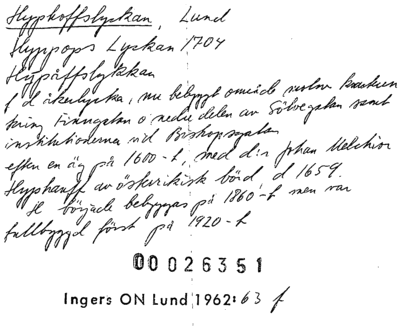 Hyphoffslyckan, Lund
Hyppops Lyckan 1704
Hypåffslykkan
f d åkerlycka, nu bebyggt område mellan
kring Finngatan o nedre delen av Sölvegatan samt
institutionerna vid Biskopsgatan
efter en äg på 1600-t, med dr Johan Melchior
Hyphauff av österrikisk börd d 1659.
H började bebyggas på 1860-t men var
fullbyggd först på 1920-t
00026351
Ingers ON Lund 1962: 63 f